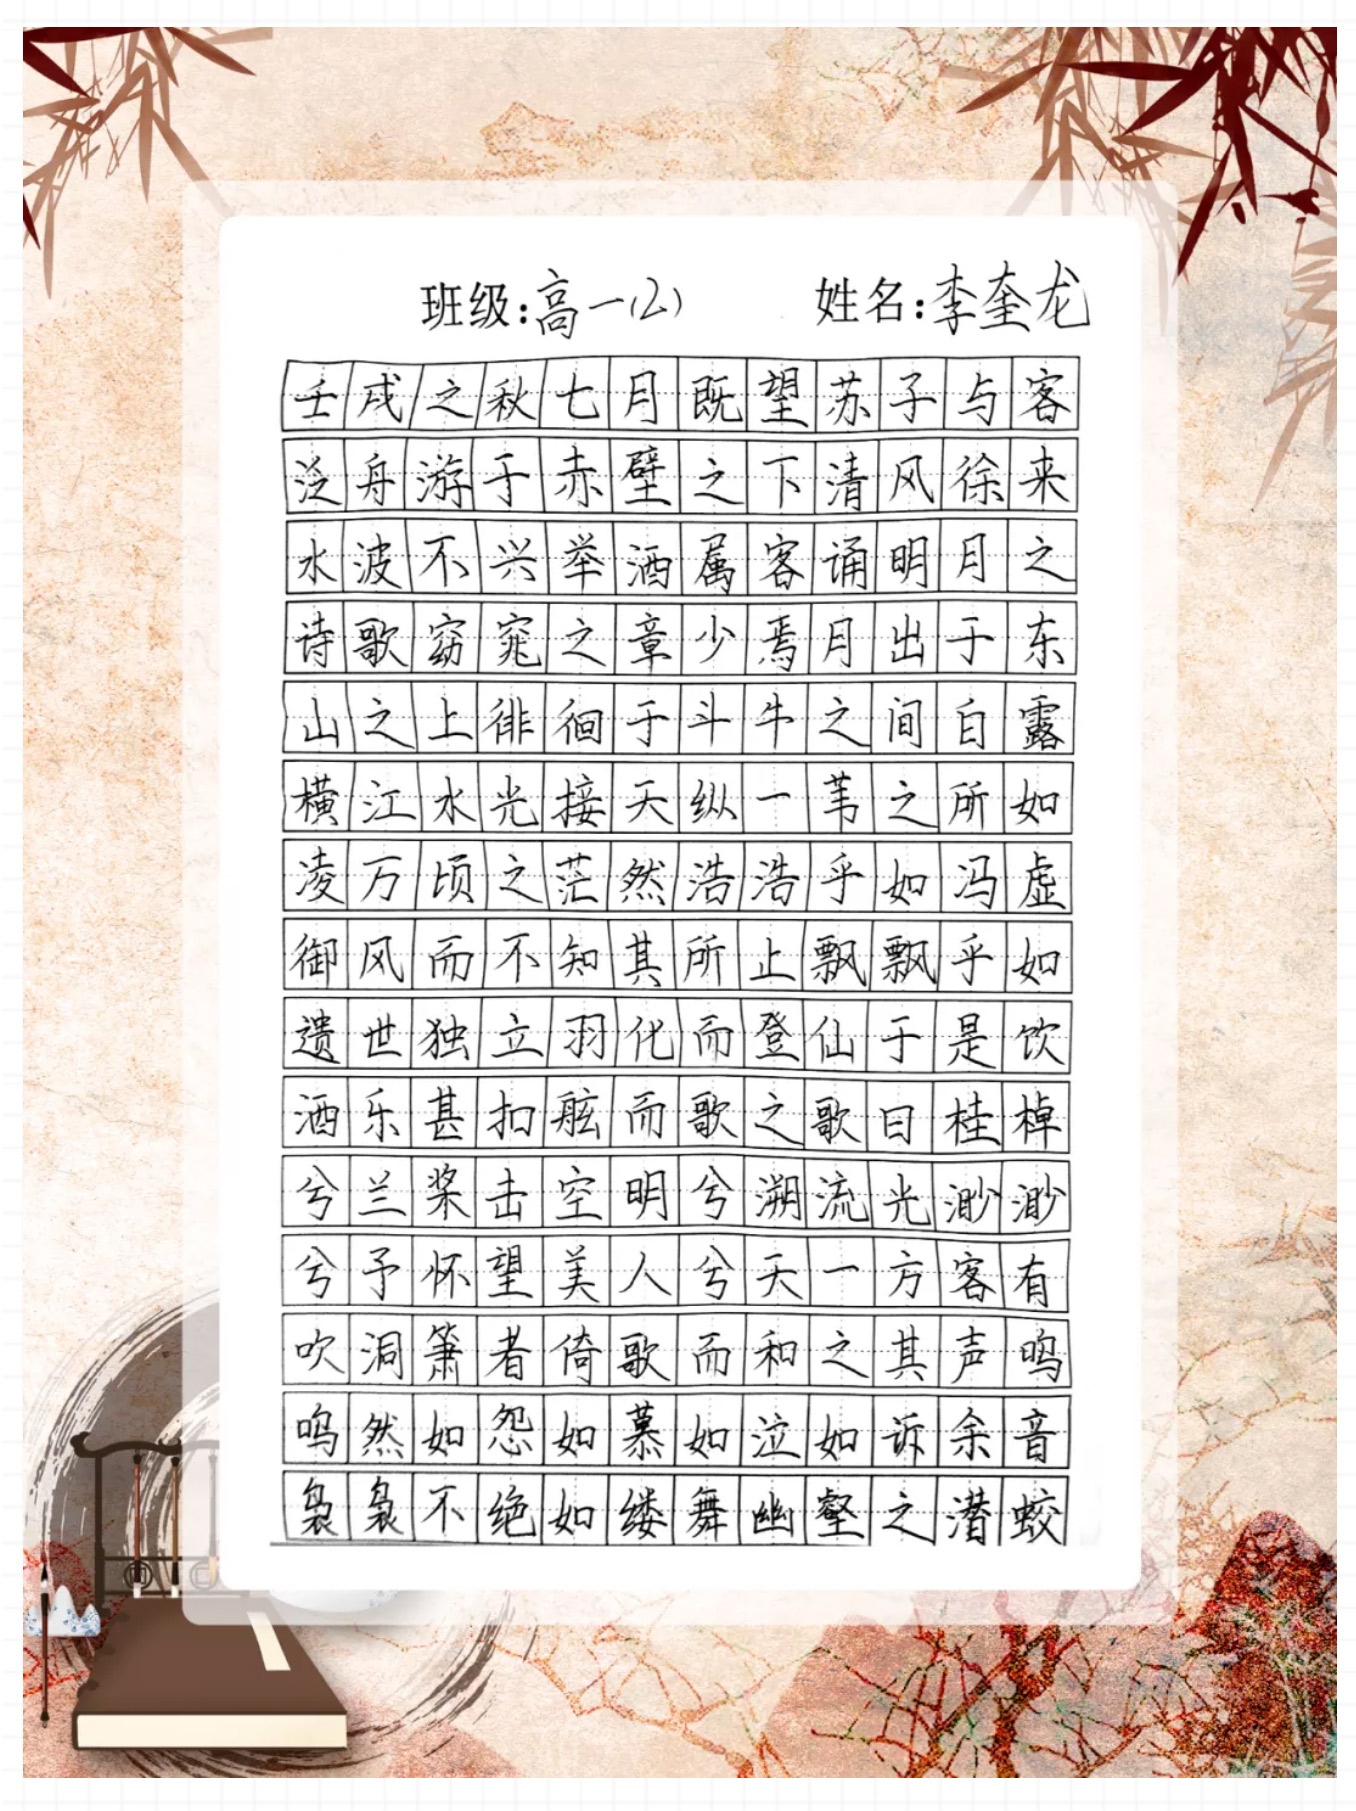 班级:高一(2) 姓名:李奎龙
壬戌之秋七月既望苏子与客
泛舟游于赤壁之下清风徐来
水波不兴举酒属客诵明月之
诗歌窈窕之章少焉月出于东
山之上徘徊于斗牛之间白露
横江水光接天纵一苇之所如
凌万顷之茫然浩浩乎如冯虚
御风而不知其所止飘飘乎如
遗世独立羽化而登仙于是饮
酒乐甚扣舷而歌之歌曰桂棹
兮兰桨击空明兮溯流光渺渺
兮予怀望美人兮天一方客有
吹洞箫者倚歌而和之其声呜
呜然如怨如慕如泣如诉余音
袅袅不绝如缕舞幽壑之潜蛟